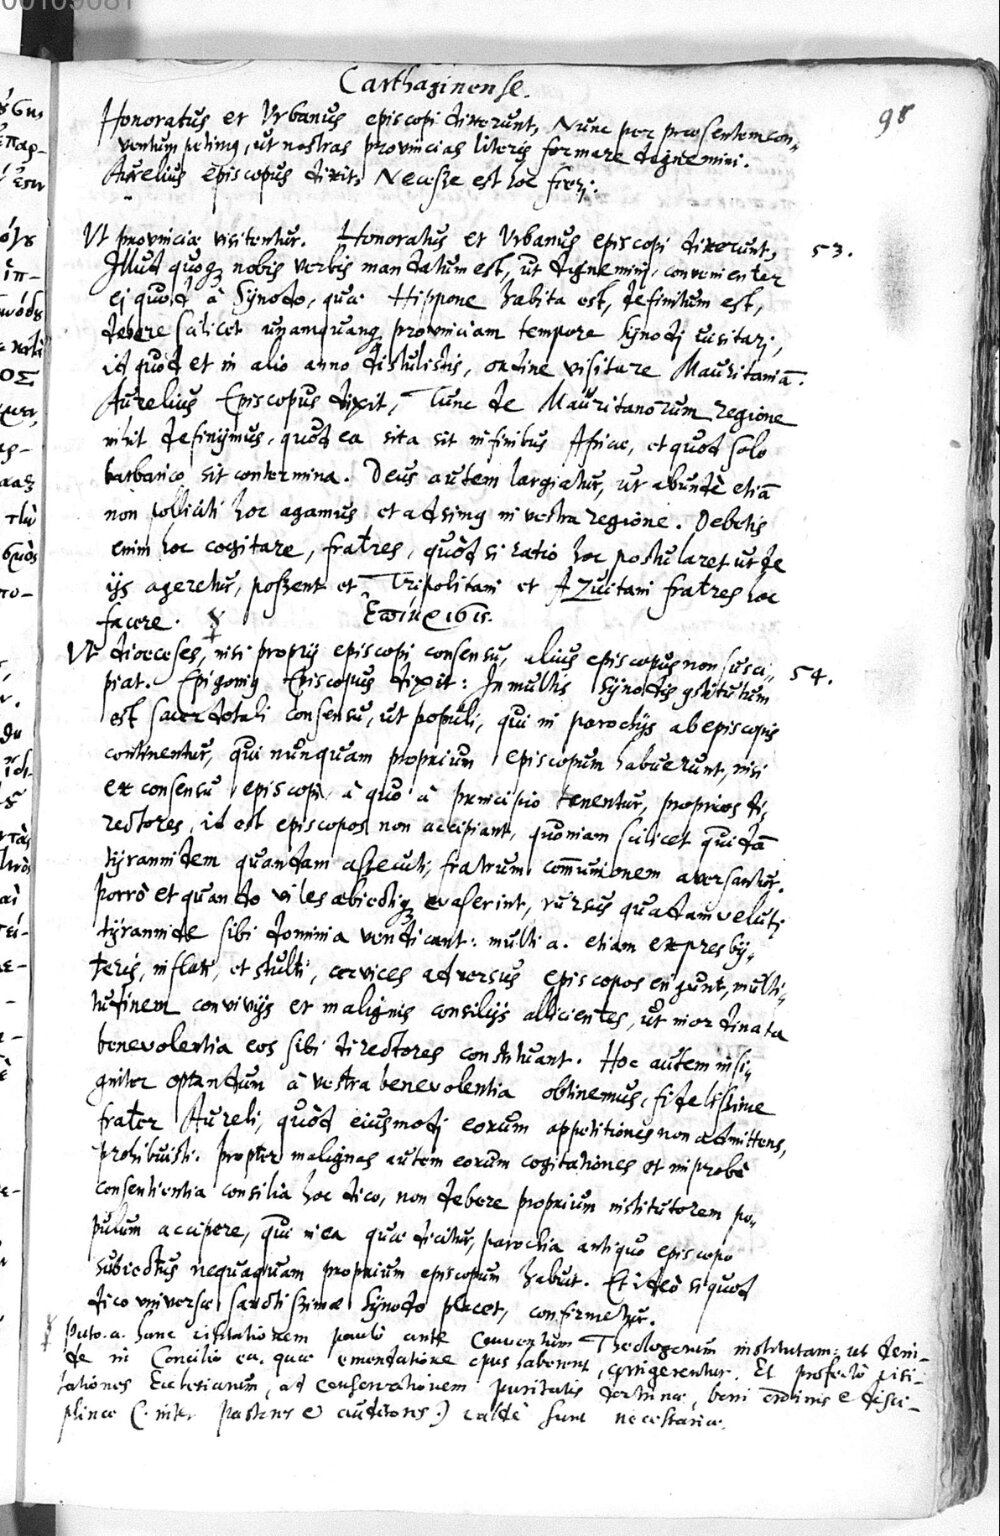 00109081
Carthaginense.
98
Honoratus et Vrbanus episcopi dixerunt, Nunc per praesentem con„
ventum petimus, ut nostras provincias literis formare dignemini.
Aurelius episcopus dixit, Necesse est hoc fieri.
Ut provinciae visitentur. Honoratus et Urbanus episcopi dixerunt, 53.
Illud quoq; nobis verbis mandatum est, ut dignemini, convenienter
ei quod à Synodo, quae Hippone habita est, definitum est,
debere scilicet unamquamq; provinciam tempore synodi visitari,
id quod et in alio anno distulistis, ordine visitare Mauritaniā.
Aurelius Episcopus dixit, Tunc de Mauritanorum regione
nihil definijmus, quod ea sita sit in finibus Africae, et quod solo
barbarico sit contermina. Deus autem largiatur, ut abundè etiā
non polliciti hoc agamus et adsimus in vestra regione. Debetis
enim hoc cogitare, fratres, quòd si ratio hoc postularet ut de
ijs ageretur, possent et Tripolitani et Azuitani fratres hoc
facere.
Ut dioeceses, nisi proprij episcopi consensu, alius episcopus non susci„ 54.
piat. Epigonius Episcopus dixit: In multis Synodis constitutum
est sacerdotali consensu, ut populi, qui in parochijs ab episcopis
continentur, qui nunquam proprium episcopum habuerunt, nisi
ex consensu episcopi à quo à principio tenentur, proprios di„
rectores, id est episcopos non accipiant, quoniam scilicet quidā
tyrannidem quandam assecuti, fratrum com̄unionem aversantur.
Porrò et quando viles abiectiq; evaserint, rursus quadam veluti
tyrannide sibi dominia vendicant: multi a. etiam ex presby„
teris, inflati, et stulti, cervices adversus episcopos erigunt, multi„
tudinem convivijs et malignis consilijs allicientes, ut inordinata
benevolentia eos sibi directores constituant. Hoc autem insi„
gniter optandum à vestra benevolentia obtinemus, fidelissime
frater Aureli, quòd eiusmodi eorum appetitiones non admittens,
prohibuisti. Propter malignas autem eorum cogitationes et improbè
consentientia consilia hoc dico, non debere proprium institutorem po„
pulum accipere, qui in ea quae dicitur, parochia antiquo episcopo
subiectus nequaquam proprium episcopum habuit. Et ideò si quod
dico universae sanctissimae Synodo placet, confirmetur.
Puto. a. hanc visitationem paulò ante Conventum Theologorum institutam: ut dein-
de in Concilio ea. quae emendatione opus haberent, corrigerentur. Et profectò visi-
tationes Ecclesiarum, ad conservationem puritatis doctrinae, boni ordinis & disci-
plinae (inter pastores & auditores) valdè sunt necessariae.